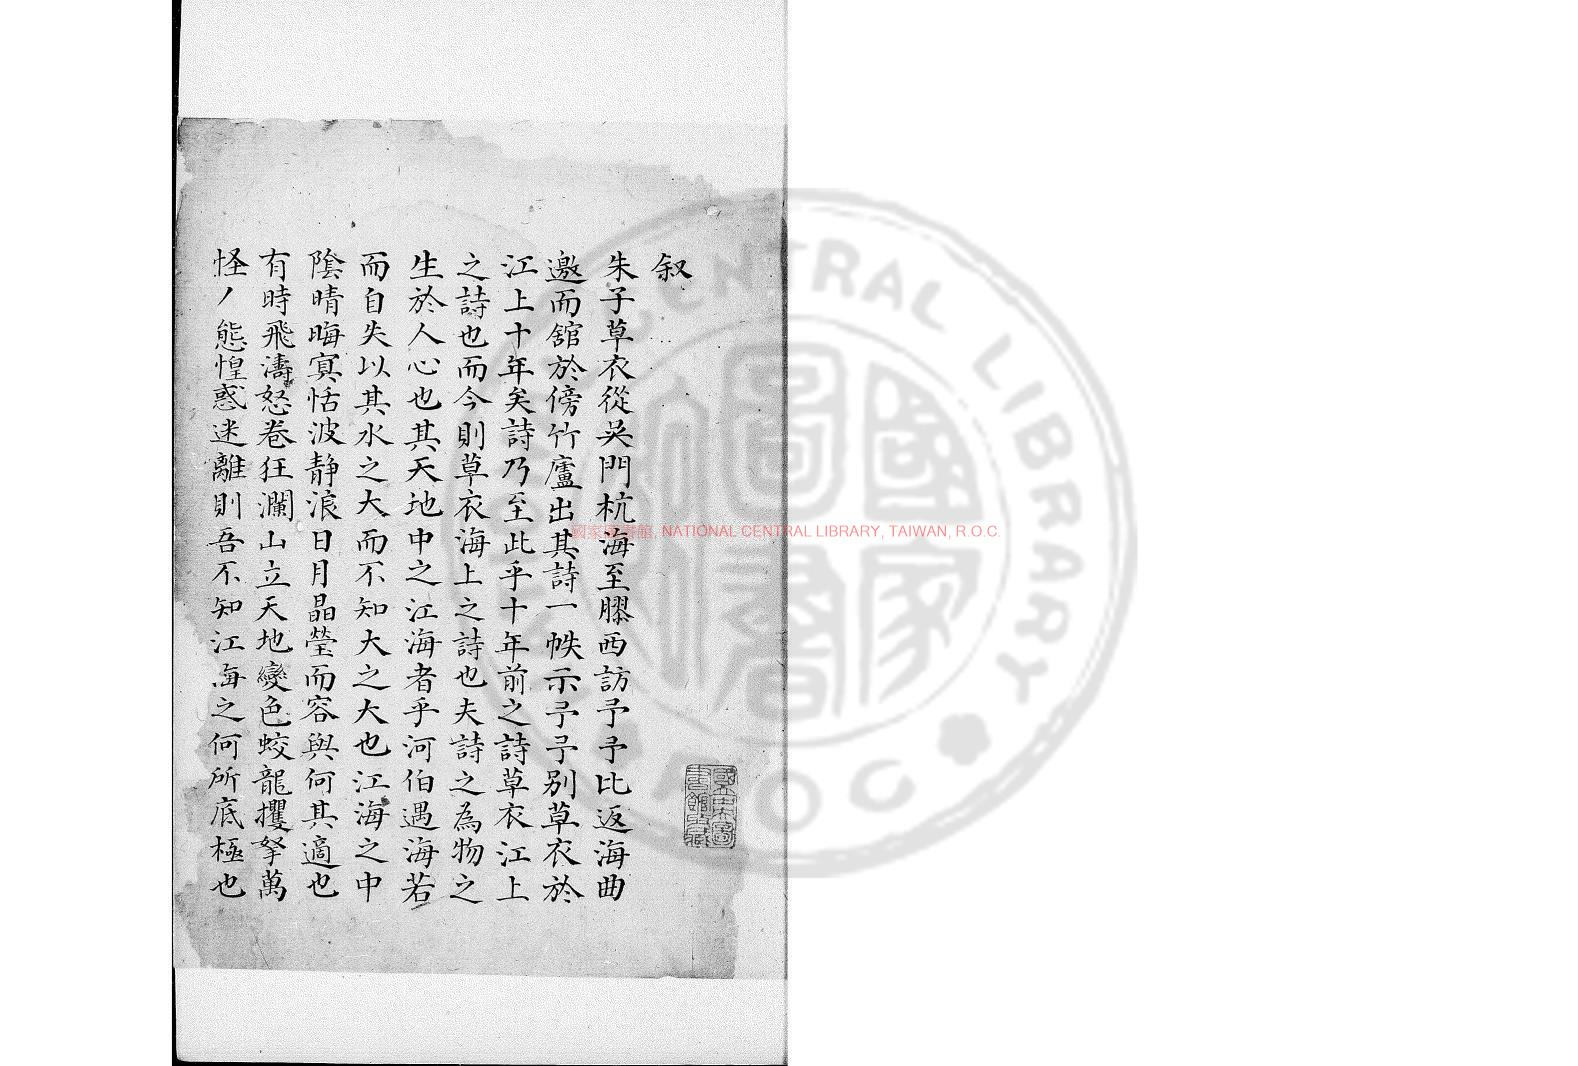 叙
朱子草衣從吳門杭海至膠西訪予予比返海曲
邀而舘於傍竹廬出其詩一帙示予予别草衣於
江上十年矣詩乃至此乎十年前之詩草衣江上
之詩也而今則草衣海上之詩也夫詩之為物之
生於人心也其天地中之江海者乎河伯遇海若
而自失以其水之大而不知大之大也江海之中
陰晴晦冥恬波静浪日月晶瑩而容與何其適也
有時飛濤怒卷狂瀾山立天地變色蛟龍攫拏萬
怪ノ態惶惑迷離則吾不知江海之何所底極也
國立中央圖書館收藏
國家圖書館, NATIONAL CENTRAL LIBRARY, TAIWAN, R.O.C.
NATIONAL CENTRAL LIBRARY
R.O.C.